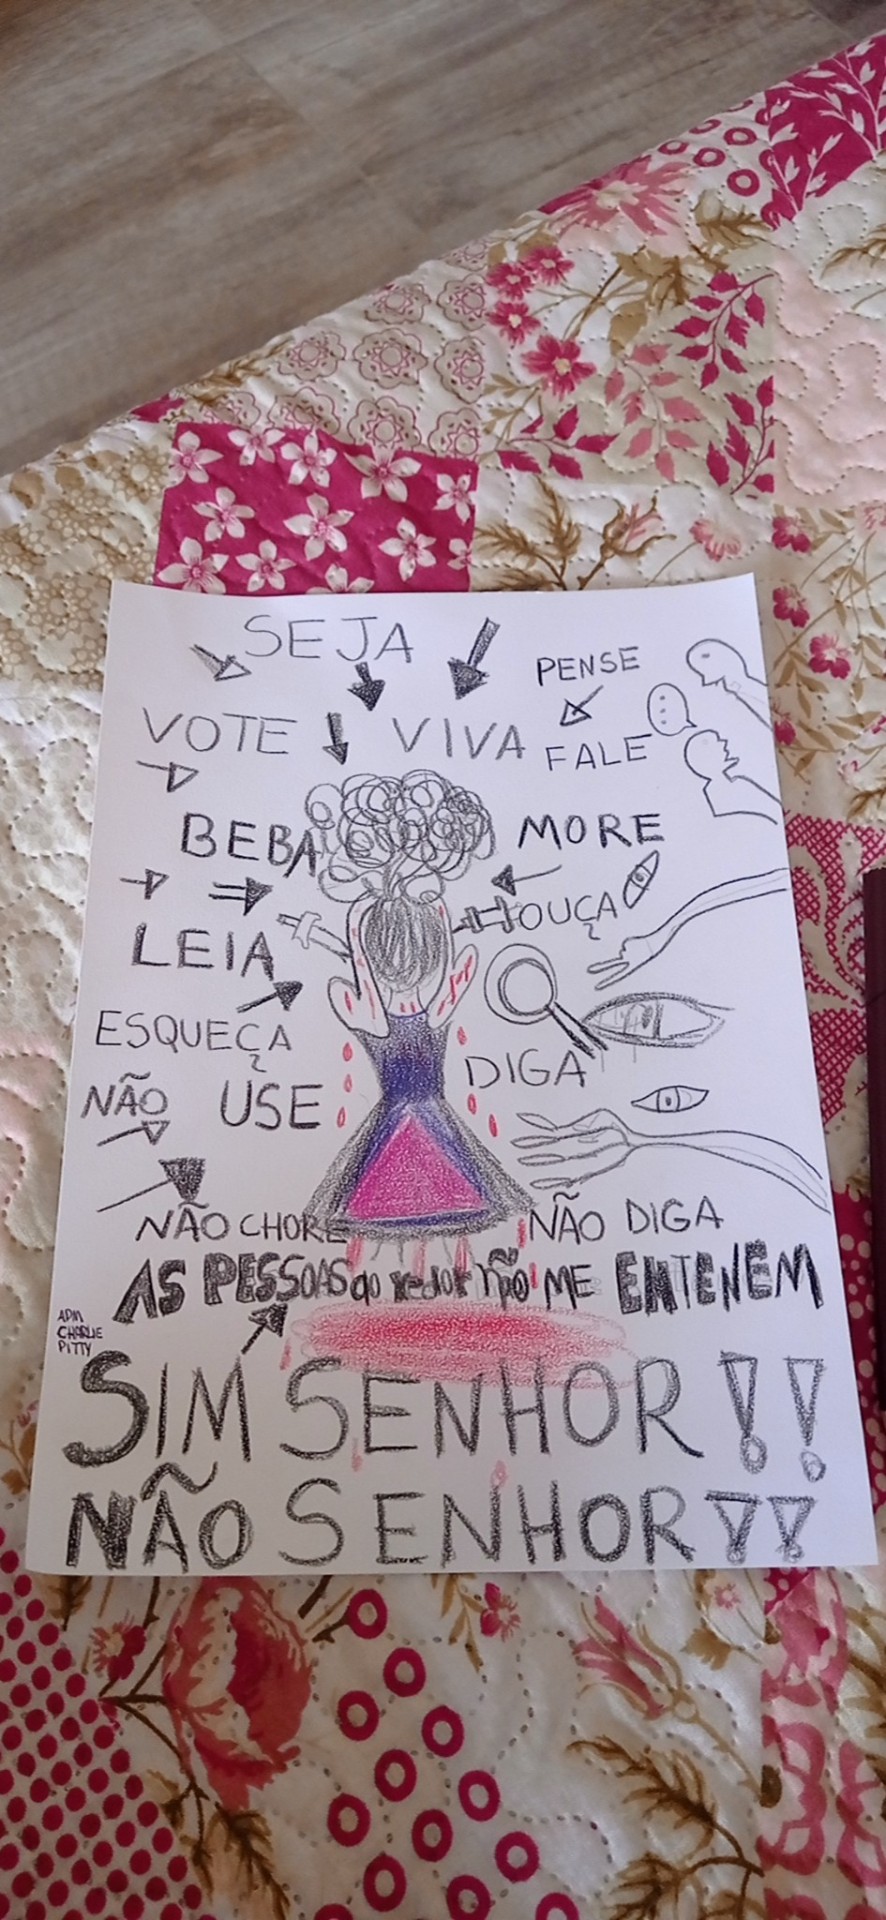 SEJA
PENSE
VOTE VIVA
FALE
BEBA MORE
OUÇA
LEIA
ESQUEÇA
DIGA
NÃO USE
NÃO CHORE NÃO DIGA
AS PESSOAS ao redor não ME ENTENEM
APM
CHARLIE
PITTY
SIM SENHOR!!
NÃO SENHOR!!